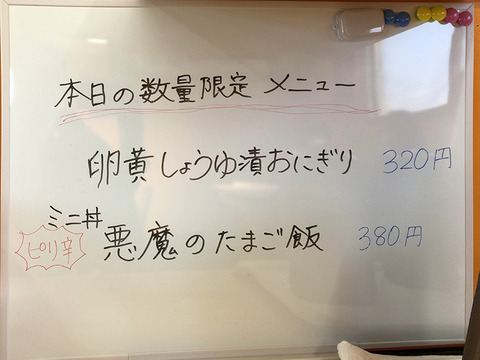 本日の数量限定 メニュー
卵黄しょうゆ漬おにぎり 320円
ミニ丼
ピリ辛 悪魔のたまご飯 380円